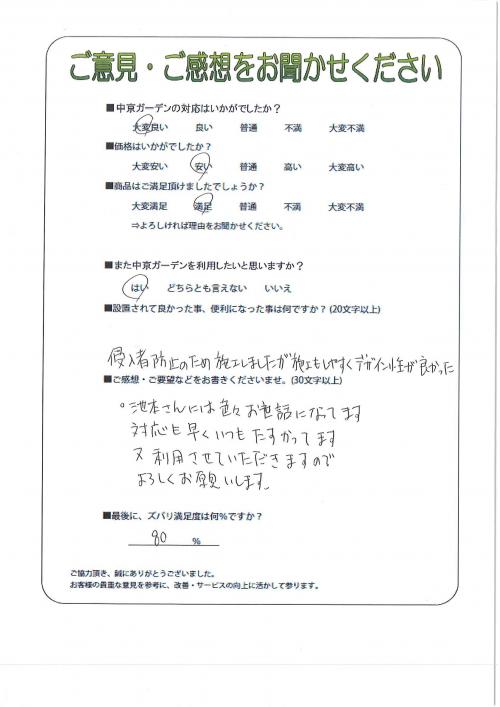 ご意見・ご感想をお聞かせください
■中京ガーデンの対応はいかがでしたか？
大変良い 良い 普通 不満 大変不満
■価格はいかがでしたか？
大変安い 安い 普通 高い 大変高い
■商品はご満足頂けましたでしょうか？
大変満足 満足 普通 不満 大変不満
⇒よろしければ理由をお聞かせください。
■また中京ガーデンを利用したいと思いますか？
はい どちらとも言えない いいえ
■設置されて良かった事、便利になった事は何ですか？(20文字以上)
侵入者防止のため施工しましたが施工もしやすくデザイン性が良かった
■ご感想・ご要望などをお書きくださいませ。(30文字以上)
。池本さんには色々お世話になってます
対応も早くいつもたすかってます
又利用させていただきますので
よろしくお願いします。
■最後に、ズバリ満足度は何％ですか？
80 ％
ご協力頂き、誠にありがとうございました。
お客様の貴重な意見を参考に、改善・サービスの向上に活かして参ります。